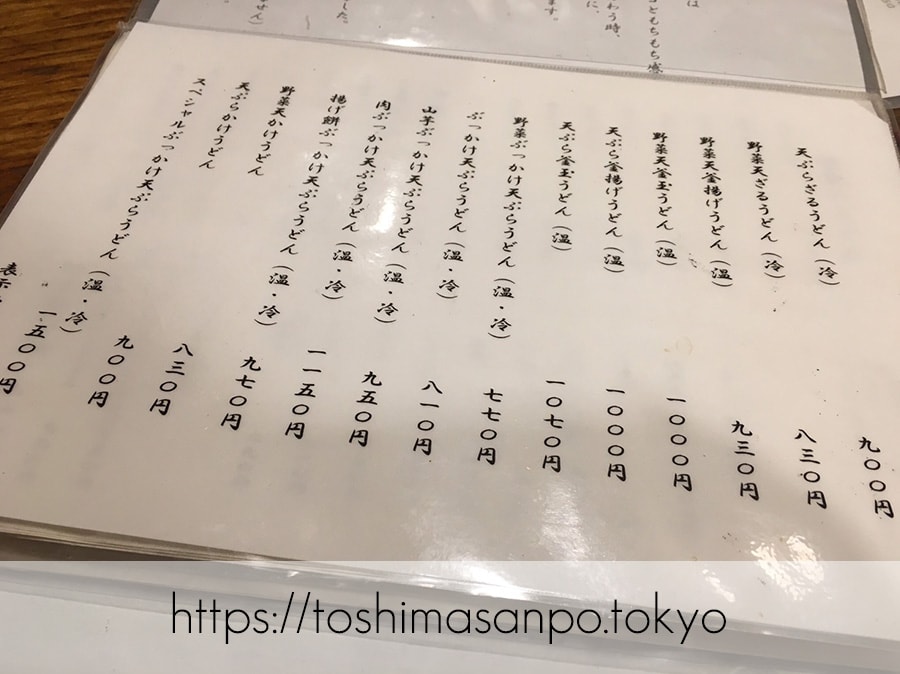 天ぷらざるうどん（冷） 九〇〇円
野菜天ざるうどん（冷） 八三〇円
野菜天釜揚げうどん（温） 九三〇円
野菜天釜玉うどん（温） 一〇〇〇円
天ぷら釜揚げうどん（温） 一〇〇〇円
天ぷら釜玉うどん（温） 一〇七〇円
野菜ぶっかけ天ぷらうどん（温・冷） 七七〇円
ぶっかけ天ぷらうどん（温・冷） 八一〇円
山芋ぶっかけ天ぷらうどん（温・冷） 九五〇円
肉ぶっかけ天ぷらうどん（温・冷） 一一五〇円
揚げ餅ぶっかけ天ぷらうどん（温・冷） 九七〇円
野菜天かけうどん 八三〇円
天ぷらかけうどん 九〇〇円
スペシャルぶっかけ天ぷらうどん（温・冷） 一五〇〇円
https://toshimasanpo.tokyo